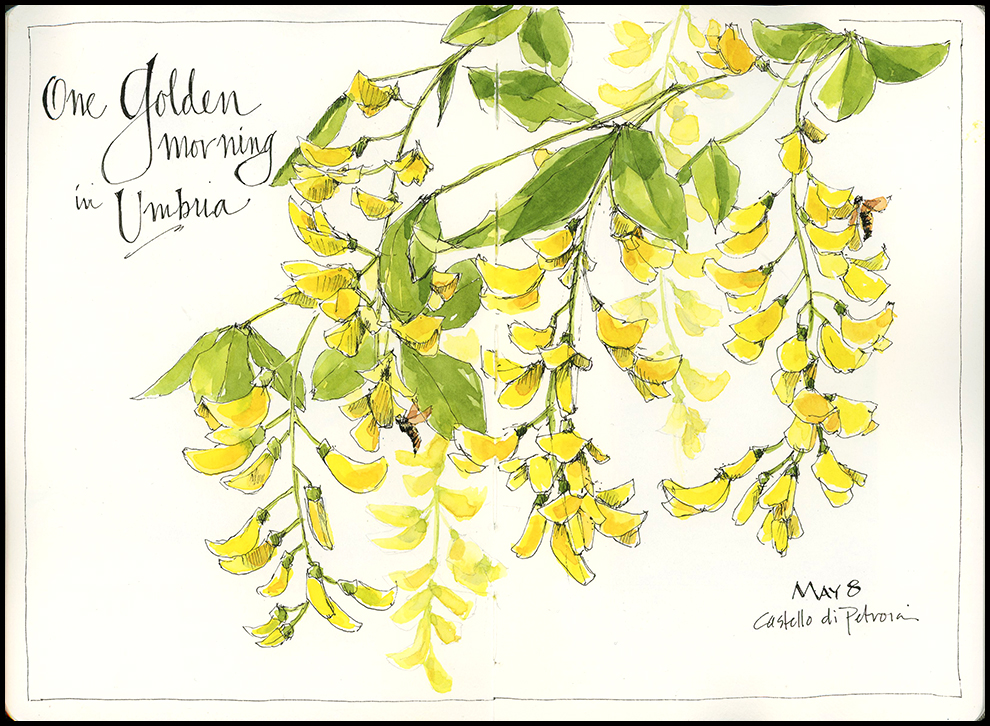 One Golden
morning
in Umbria
MAY 8
Castello di Petroia